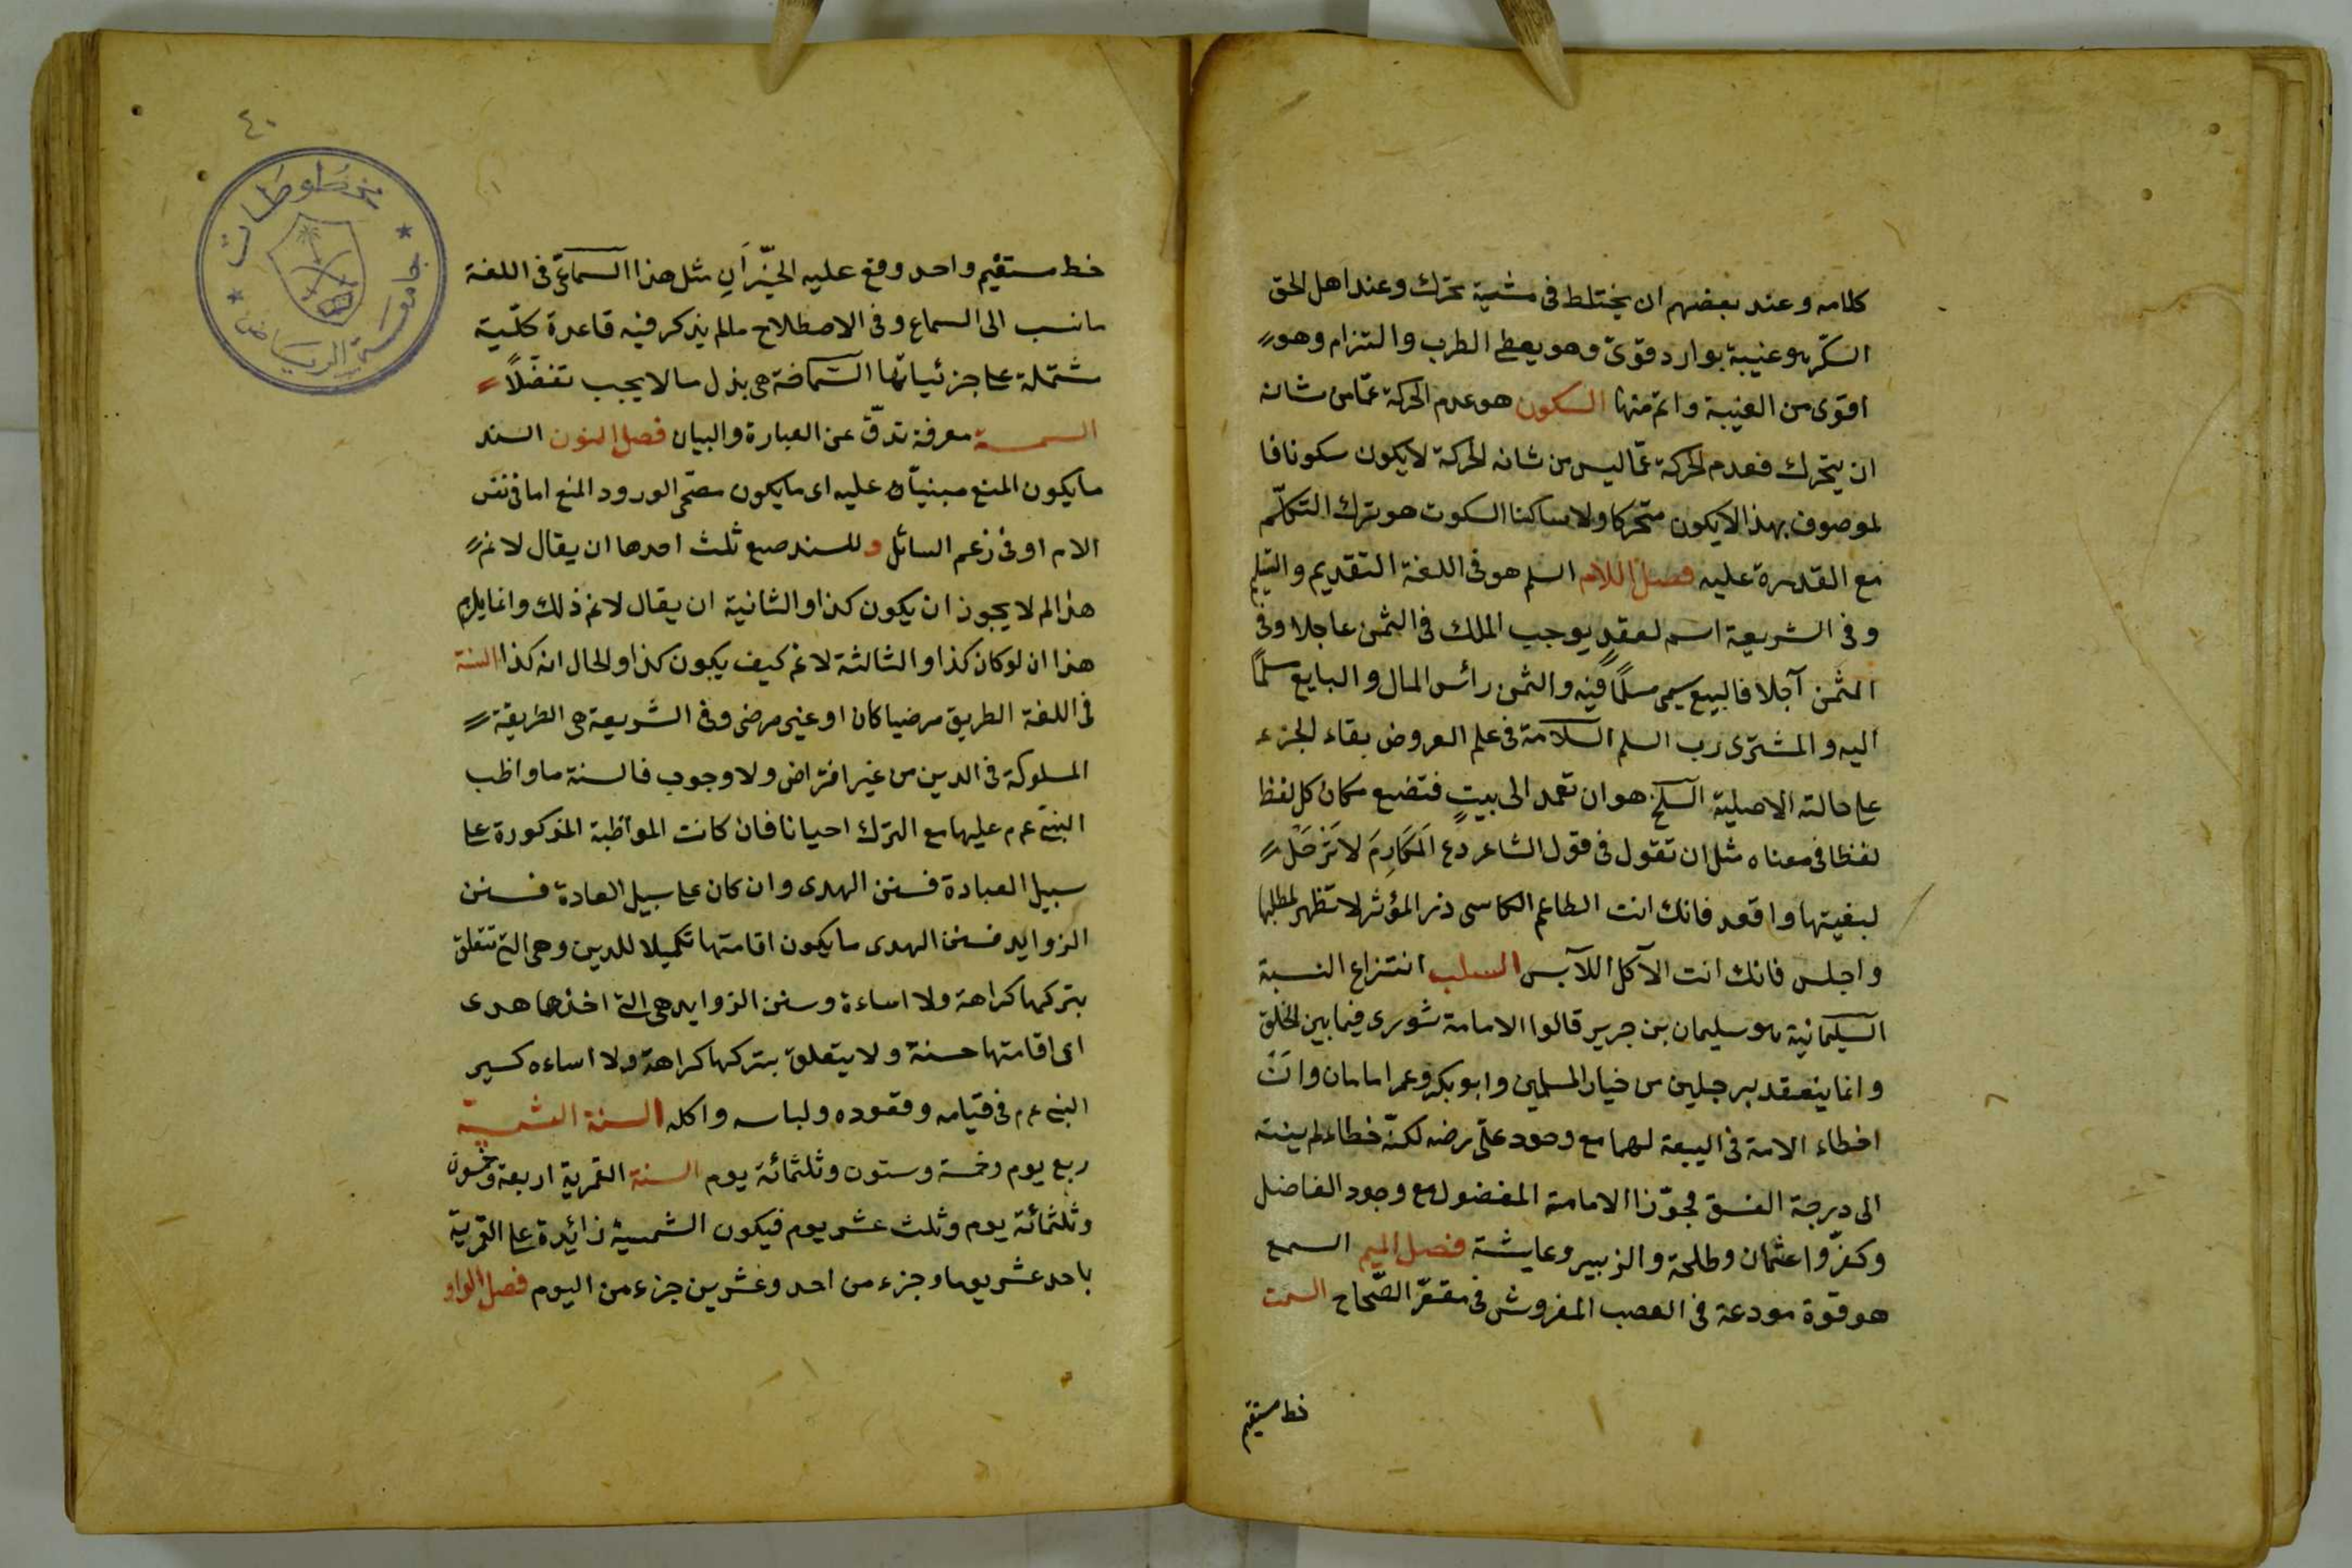 كلامه وعند بعضهم ان يختلط فى مشية تحرك وعند اهل الحق
السكر هو غيبة بوارد قوىّ وهو يعطى الطرب والتزام وهو
اقوى من الغيبة واتم منها السكون هو عدم الحركة عمّا من شانه
ان يتحرك فعدم الحركة عمّا ليس من شانه الحركة لا يكون سكونا فا
لموصوف بهذا لا يكون متحركا ولا ساكنا السكوت هو ترك التكلّم
مع القدرة عليه فصل اللام السلم هو فى اللغة التقديم والتسليم
وفى الشريعة اسم لعقدٍ يوجب الملك فى الثمن عاجلا وفى
المثمن آجلا فالبيع يسمى مسلمًا فيه والثمن رائس المال والبايع مسلمًا
اليه والمشترى رب السلم السلامة فى علم العروض بقاء الجزء
على حالته الاصلية السلخ هو ان تعمد الى بيتٍ فتضع مكان كل لفظ
لفظا فى معناه مثل ان تقول فى قول الشاعر دع المَكَارِمَ لا تَرْحَلْ
لبغيتها واقعد فانك انت الطاعم الكاسى ذر المؤثر لا تظهر لمطلبها
واجلس فانك انت الآكل اللآبس السلب انتزاع النسبة
السليمانية هو سليمان بن جرير قالوا الامامة شورى فيما بين الخلق
وانما ينعقد برجلين من خيار المسلمين وابو بكر وعمر امامان وان
اخطاء الامة فى البيعة لهما مع وجود علىّ رضه لكنّه خطاء لم ينته
الى درجة الفسق فجوّزا الامامة المفضول مع وجود الفاضل
وكفّروا عثمان وطلحة والزبير وعايشة فصل الميم السمع
هو قوة مودعة فى العصب المفروش فى مقعّر الصّماح السمت
خط مستقيم
٤٠
مخطوطات
جامعة الرياض
خط مستقيم واحد وقع عليه الحيّزانِ مثل هذا السماعىّ فى اللغة
ما نسب الى السماع وفى الاصطلاح مالم يذكر فيه قاعدة كلّية
مشتملة على جزئياتها السماحة هى بذل ما لا يجب تفضّلاً
السمسمة معرفة تدقّ عن العبارة والبيان فصل النون السند
ما يكون المنع مبنيّا عليه اى ما يكون مصحّحا لورود المنع اما فى نفس
الامر او فى زعم السائل وللسند صيغ ثلث احدها ان يقال لا نم
هذا لم لا يجوز ان يكون كذا والثانية ان يقال لا نم ذلك وانما يلزم
هذا ان لو كان كذا والثالثة لا نم كيف يكون كذا والحال انه كذا السنة
فى اللغة الطريق مرضيا كان او غير مرضى وفى الشريعة هى الطريقة
المسلوكة فى الدين من غير افتراض ولا وجوب فالسنة ما واظب
النبى ع م عليها مع الترك احيانا فان كانت المواظبة المذكورة على
سبيل العبادة فسنن الهدى وان كان على سبيل العادة فسنن
الزوايد فسنن الهدى ما يكون اقامتها تكميلا للدين وهى التى تتعلق
بتركها كراهة ولا اساءة وسنن الزوايد هى التى اخذها هدى
اى اقامتها حسنة ولا يتعلق بتركها كراهة ولا اساءه كسير
النبى ع م فى قيامه وقعوده ولباسه واكله السنة الشمسية
ربع يوم وخمسة وستون وثلثمائة يوم السنة القمرية اربعة وخمسون
وثلثمائة يوم وثلث عشر يوم فيكون الشمسية زائدة على القمرية
باحد عشر يوما وجزء من احد وعشرين جزء من اليوم فصل الواو